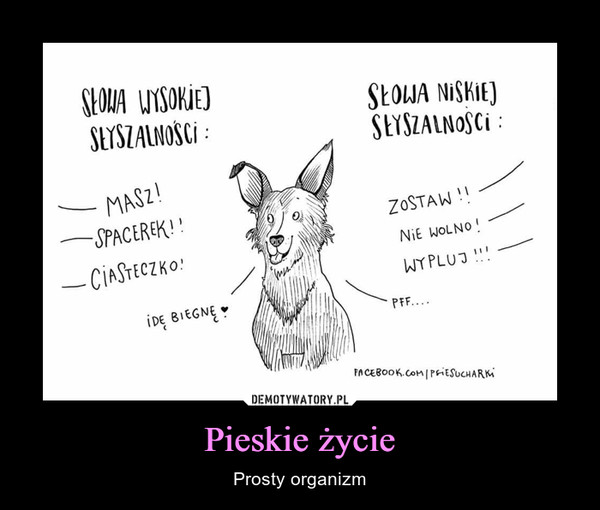 SŁOWA WYSOKIEJ
SŁYSZALNOŚCI :
MASZ!
SPACEREK!!
CIASTECZKO!
IDĘ BIEGNĘ ♥
SŁOWA NISKIEJ
SŁYSZALNOŚCI :
ZOSTAW !!
NIE WOLNO !
WYPLUJ !!!
PFF....
FACEBOOK.COM/PSIESUCHARKI
DEMOTYWATORY.PL
Pieskie życie
Prosty organizm